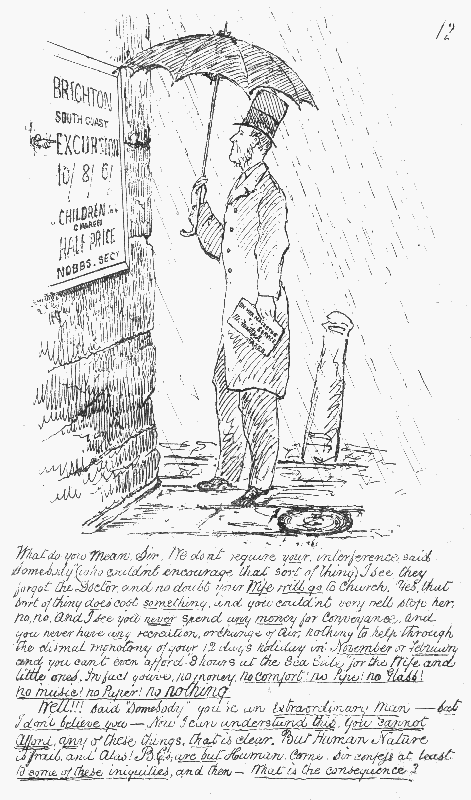 12
BRIGHTON
SOUTH COAST
EXCURSION
10/ 8/ 6/
CHILDREN
CHARGED
HALF PRICE
NOBBS. SECY
What do you mean, Sir, We dont require your interference, said
Somebody (who couldnt encourage that sort of thing) I see they
forgot the Doctor, and no doubt your Wife will go to Church, Yes, that
sort of thing does cost something, and you couldn't very well stop her,
no, no. And I see you never spend any money for Conveyance, and
you never have any recreation, or change of Air, nothing to help through
the dismal monotony of your 12 days holiday in November or February
and you can't even afford 8 hours at the Sea Side, for the Wife and
little ones. In fact you've, no money, no comfort! no Pipe! no Glass!
no music! no Paper! no nothing
Well!!! said "Somebody" you're an Extraordinary Man — but
I don't believe you — Now I can understand this, you cannot
Afford, any of these things, that is clear. But Human Nature
is frail, and Alas! are but Human. Come Sir confess at least
to some of these iniquities, and then — What is the consequence?